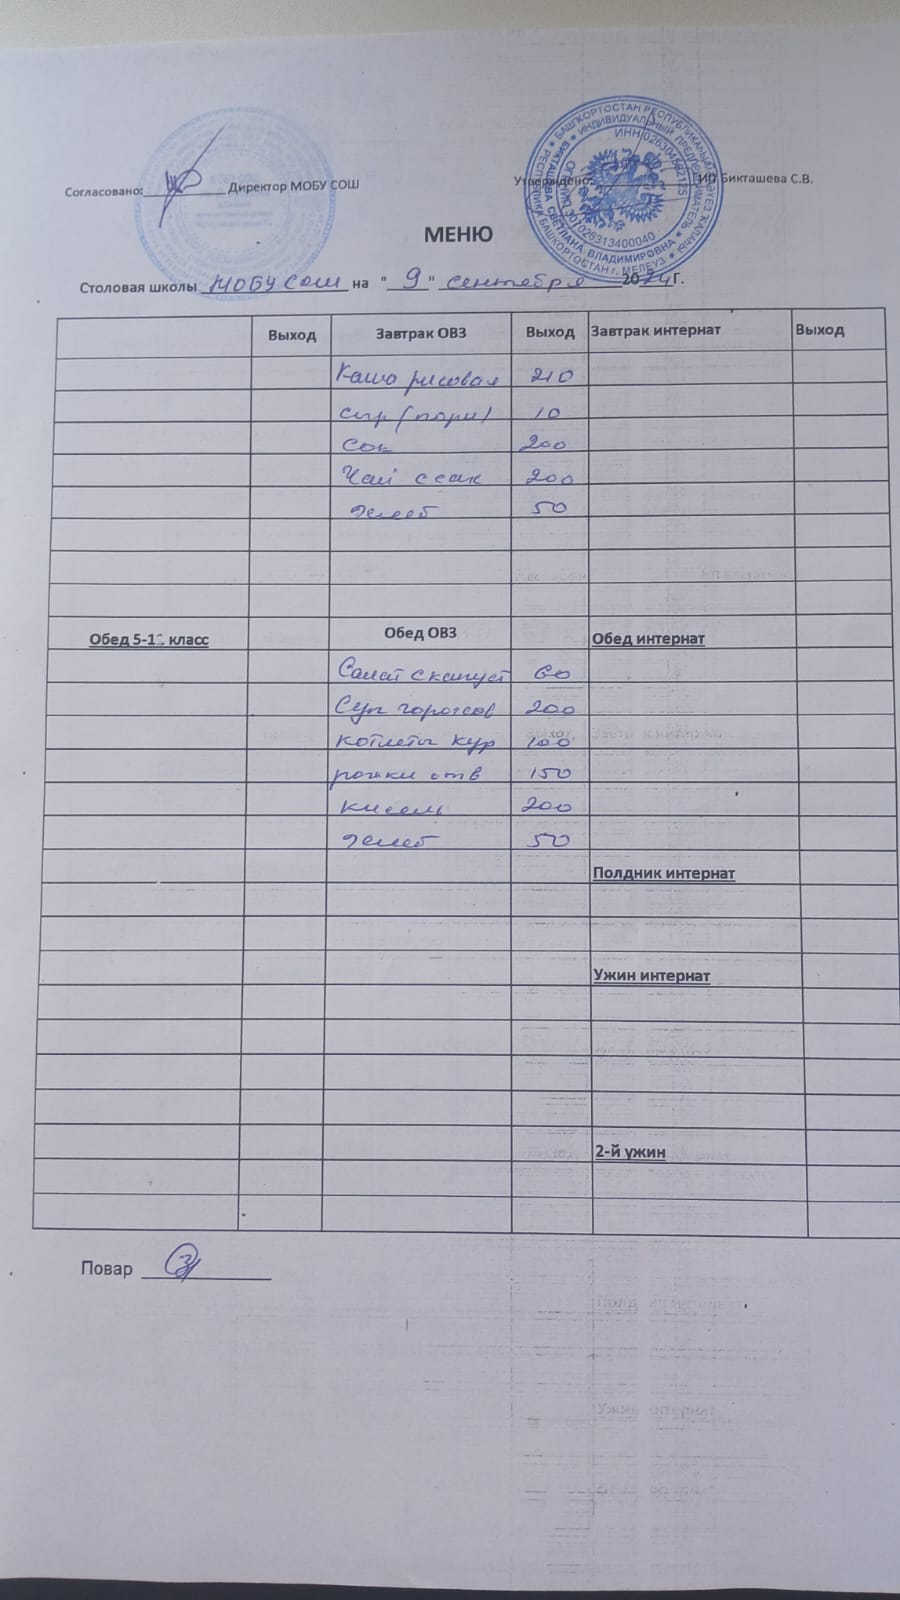 Согласовано: Директор МОБУ СОШ
Утверждено: ИП Бикташева С.В.
БАШҠОРТОСТАН РЕСПУБЛИКАҺЫ
ИНДИВИДУАЛЬНЫЙ ПРЕДПРИНИМАТЕЛЬ
БИКТАШЕВА СВЕТЛАНА ВЛАДИМИРОВНА
БАШКОРТОСТАН г. МЕЛЕУЗ
МЕНЮ
Столовая школы МОБУ СОШ на "9" сентября 2024г.
Выход Завтрак ОВЗ Выход Завтрак интернат Выход
Каша рисовая 210
сыр (порц) 10
Сок 200
Чай с сах 200
Хлеб 50
Обед 5-11 класс Обед ОВЗ Обед интернат
Салат с капуст 60
Суп горохов 200
котлеты кур 100
рожки отв 150
кисель 200
Хлеб 50
Полдник интернат
Ужин интернат
2-й ужин
Повар